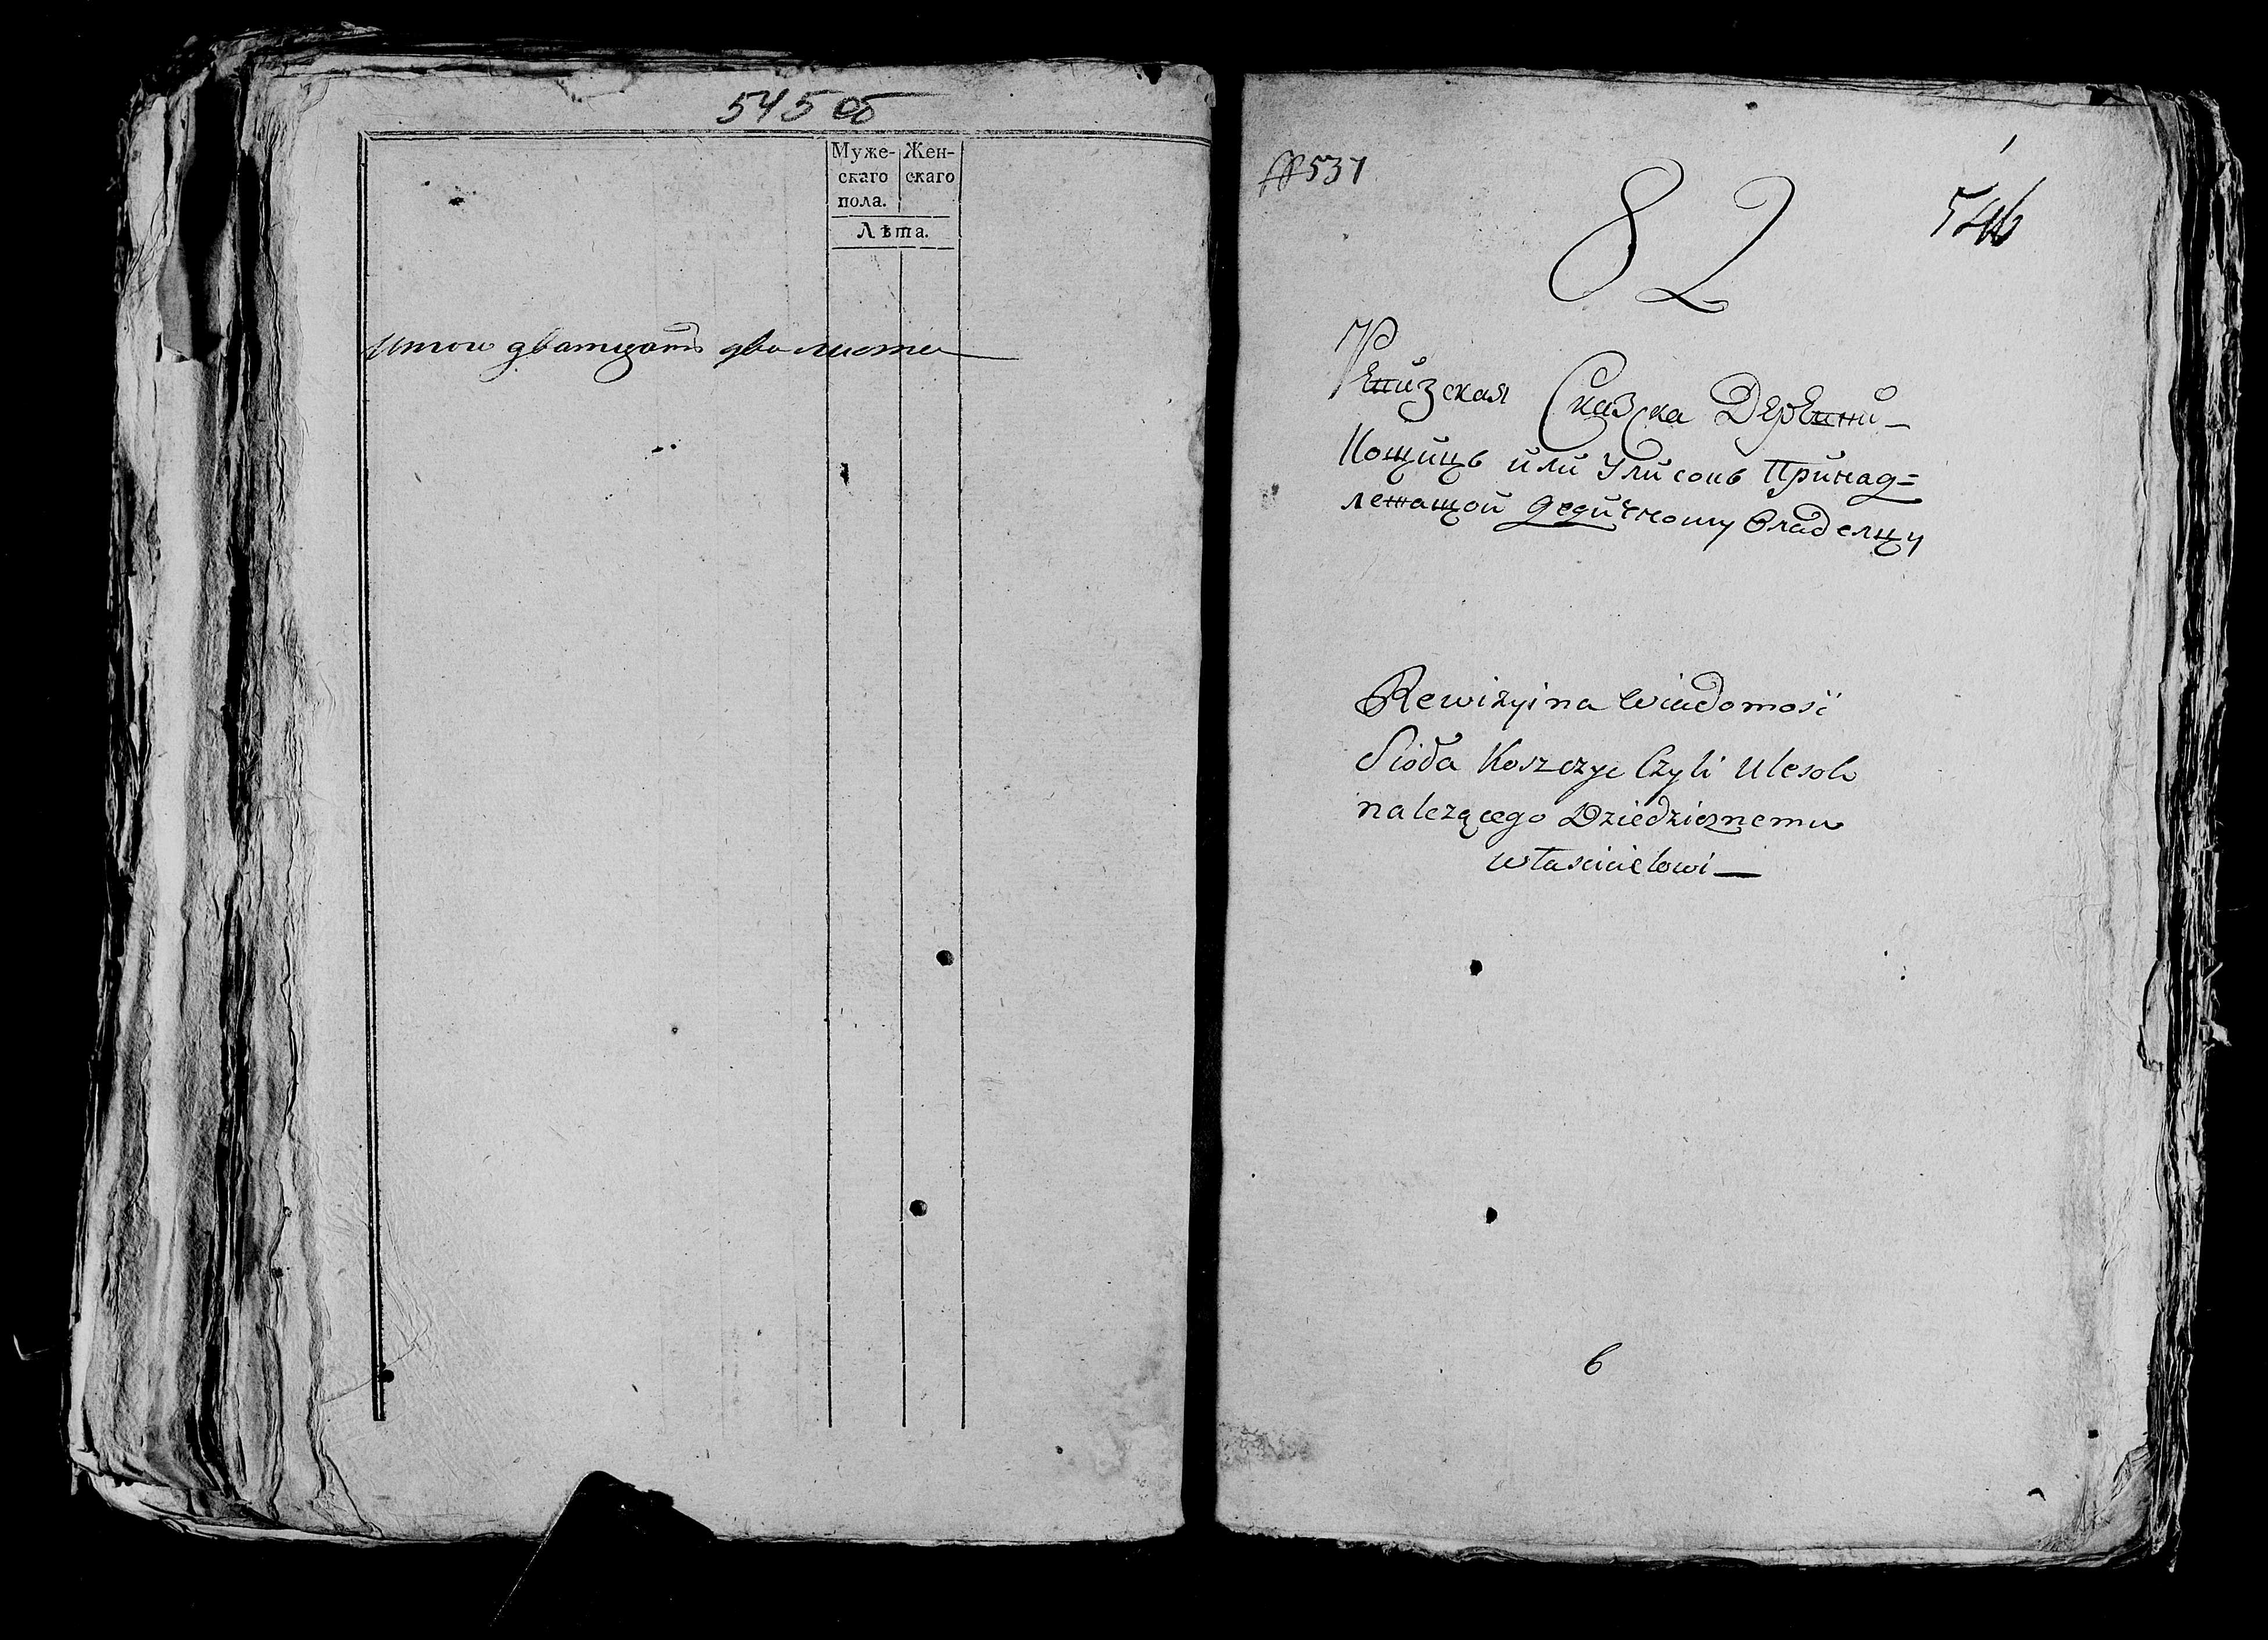 545 об
Муже- Жен-
скаго скаго
пола.
Лѣта.
Итого дватцать два листа
№ 531
82
546
Ревизская Сказска Деревни
Кощицъ или Улисокъ Принад=
лежащой Дедичному Владелцу
Rewizyina Wiadomość
Sioła Koszczyc Czyli Ulesok
nalezącego Dziedzicznemu
Własicielowi
6